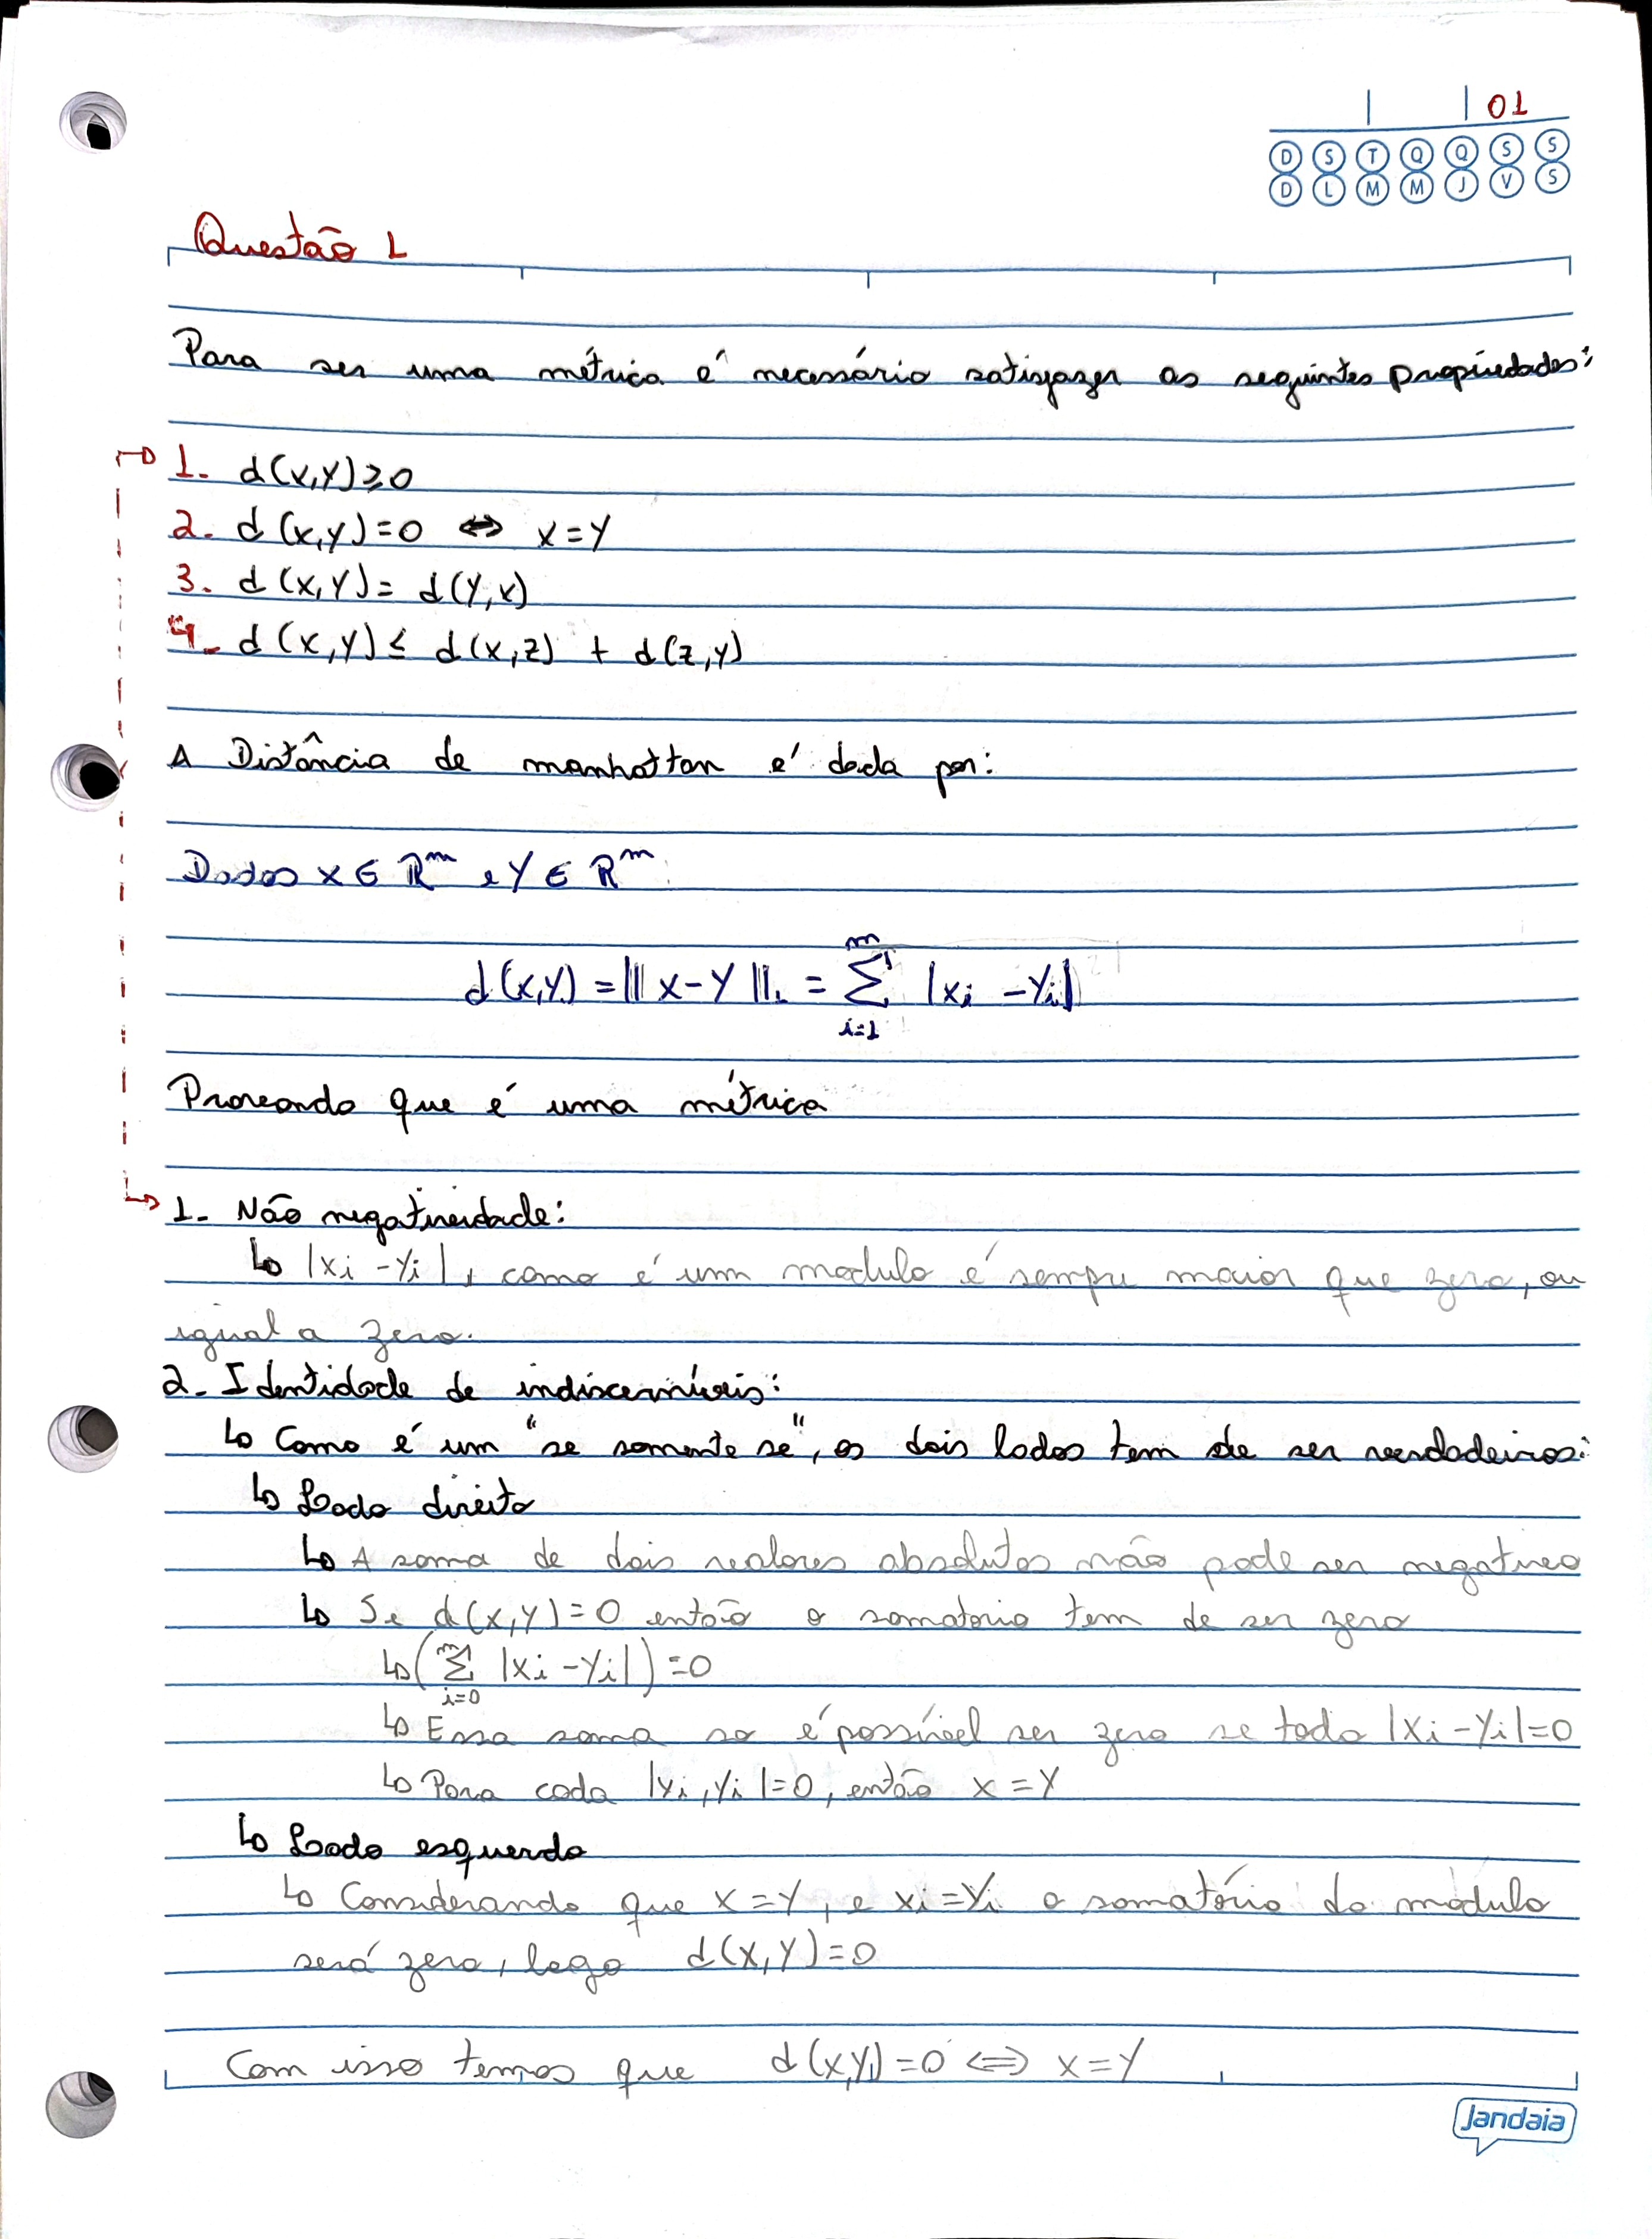 01
D S T Q Q S S
D L M M J V S
Questão 1
Para ser uma métrica é necessário satisfazer as seguintes propriedades:
1. d(x,y)≥0
2. d(x,y)=0 ⇔ x=y
3. d(x,y)= d(y,x)
4. d(x,y)≤ d(x,z) + d(z,y)
A Distância de manhattan é dada por:
Dados x ∈ ℝᵐ e y ∈ ℝᵐ
m
d(x,y) = || x-y ||₁ = Σ |xi - yi|
i=1
Provando que é uma métrica
1. Não negatividade:
↳ |xi - yi|, como é um modulo é sempre maior que zero, ou
igual a zero.
2. Identidade de indiscerníveis:
↳ Como é um "se somente se", os dois lados tem de ser verdadeiros:
↳ Lado direito
↳ A soma de dois valores absolutos não pode ser negativo
↳ Se d(x,y)=0 então o somatorio tem de ser zero
↳ (Σ |xi - yi|)=0
i=0
↳ Essa soma so é possível ser zero se todo |xi - yi|=0
↳ Para cada |xi, yi|=0, então x = y
↳ Lado esquerdo
↳ Considerando que x = y, e xi=yi o somatório do modulo
será zero, logo d(x,y)=0
Com isso temos que d(x,y)=0 ⇔ x=y
Jandaia